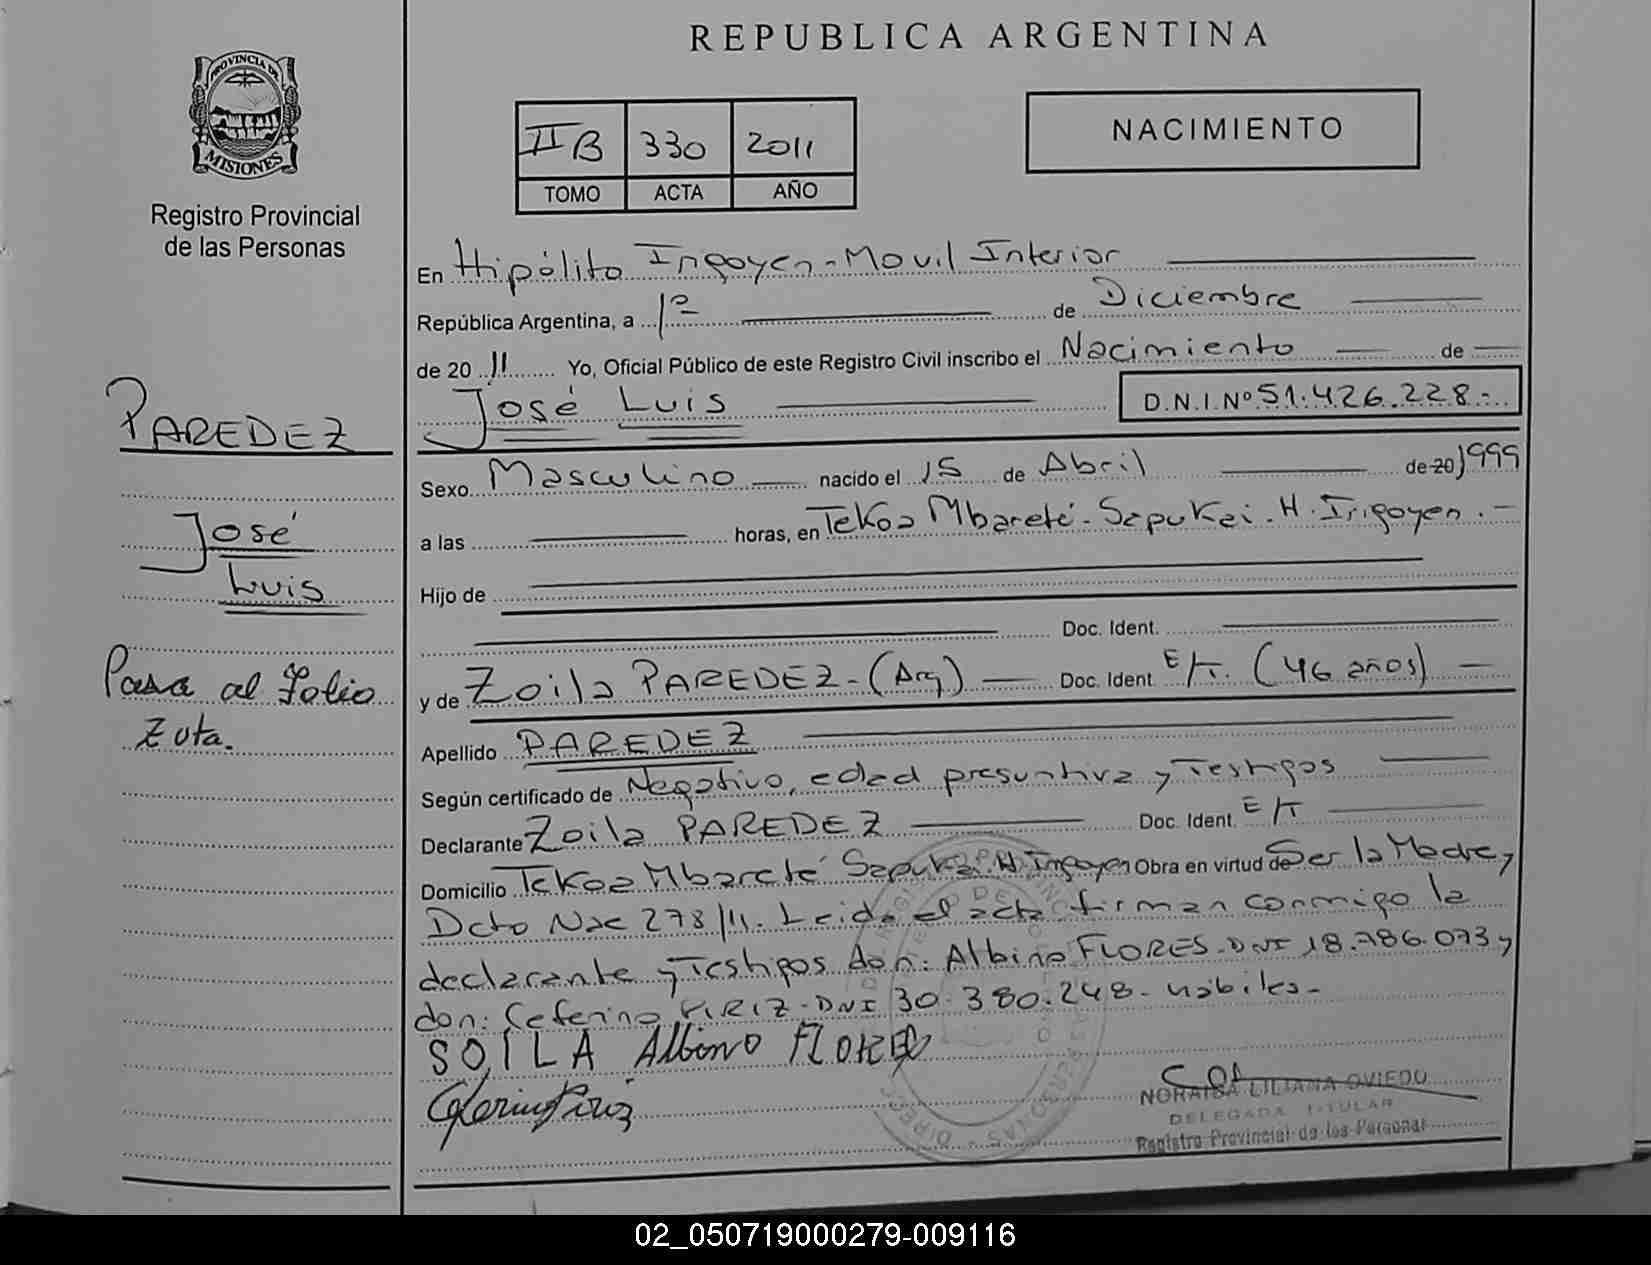 REPUBLICA ARGENTINA
PROVINCIA DE
MISIONES
Registro Provincial
de las Personas
II B 330 2011
TOMO ACTA AÑO
NACIMIENTO
En Hipólito Irigoyen - Movil Interior
República Argentina, a 1º de Diciembre
de 20 11 Yo, Oficial Público de este Registro Civil inscribo el Nacimiento de
José Luis D.N.I.Nº 51.426.228.-
PAREDEZ
José
Luis
Pasa al Folio
Zuta.
Sexo Masculino nacido el 15 de Abril de 20 1999
a las horas, en Tekoa Mbareté - Sapukai. H. Irigoyen.-
Hijo de
Doc. Ident.
y de Zoila PAREDEZ - (Arg) Doc. Ident. E/T. (46 años)
Apellido PAREDEZ
Según certificado de Negativo, edad presuntiva y Testigos
Declarante Zoila PAREDEZ Doc. Ident. E/T
Domicilio Tekoa Mbareté Sapukai. H. Irigoyen Obra en virtud de Ser la Madre y
Dcto Nac 278/11. Leida el acta firman conmigo la
declarante y Testigos don: Albino FLORES - DNI 18.786.073 y
don: Ceferino PIRIZ - DNI 30.380.248 - habiles -
SOILA Albino FLORES
Ceferino Piriz
NORAISA LILIANA OVIEDO
DELEGADA TITULAR
Registro Provincial de las Personas
02_050719000279-009116